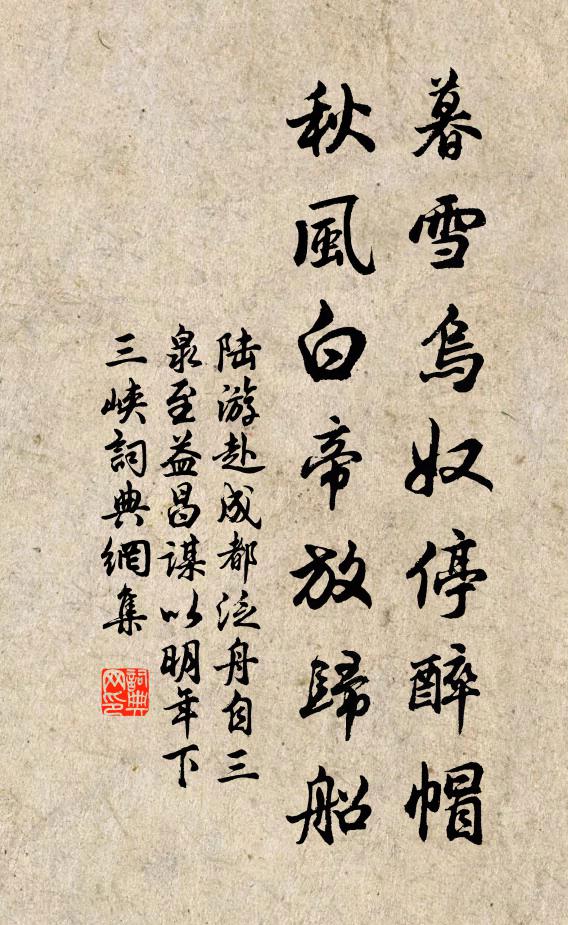 暮雪烏奴停醉帽
秋風白帝放歸船
陆游赴成都泛舟自三
泉至益昌謀以明年下
三峽詞典網集
詞典
网印